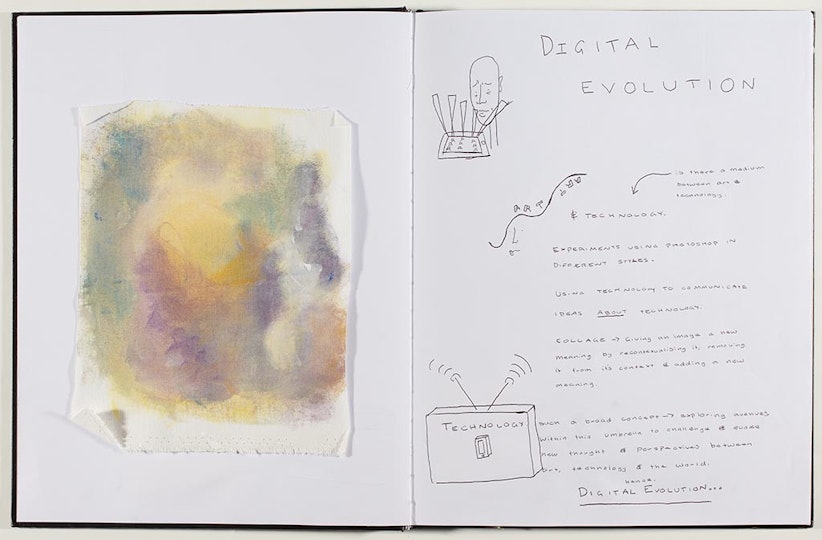 DIGITAL
EVOLUTION
is there a medium
between art &
technology.
ART
& TECHNOLOGY.
EXPERIMENTS USING PHOTOSHOP IN
DIFFERENT STYLES.
USING TECHNOLOGY TO COMMUNICATE
IDEAS ABOUT TECHNOLOGY.
COLLAGE → Giving an image a new
meaning by recontextualising it, removing
it from its context & adding a new
meaning.
TECHNOLOGY
such a broad concept → exploring avenues
within this umbrella to challenge & evoke
new thought & perspectives between
art, technology & the world.
hence.
DIGITAL EVOLUTION...